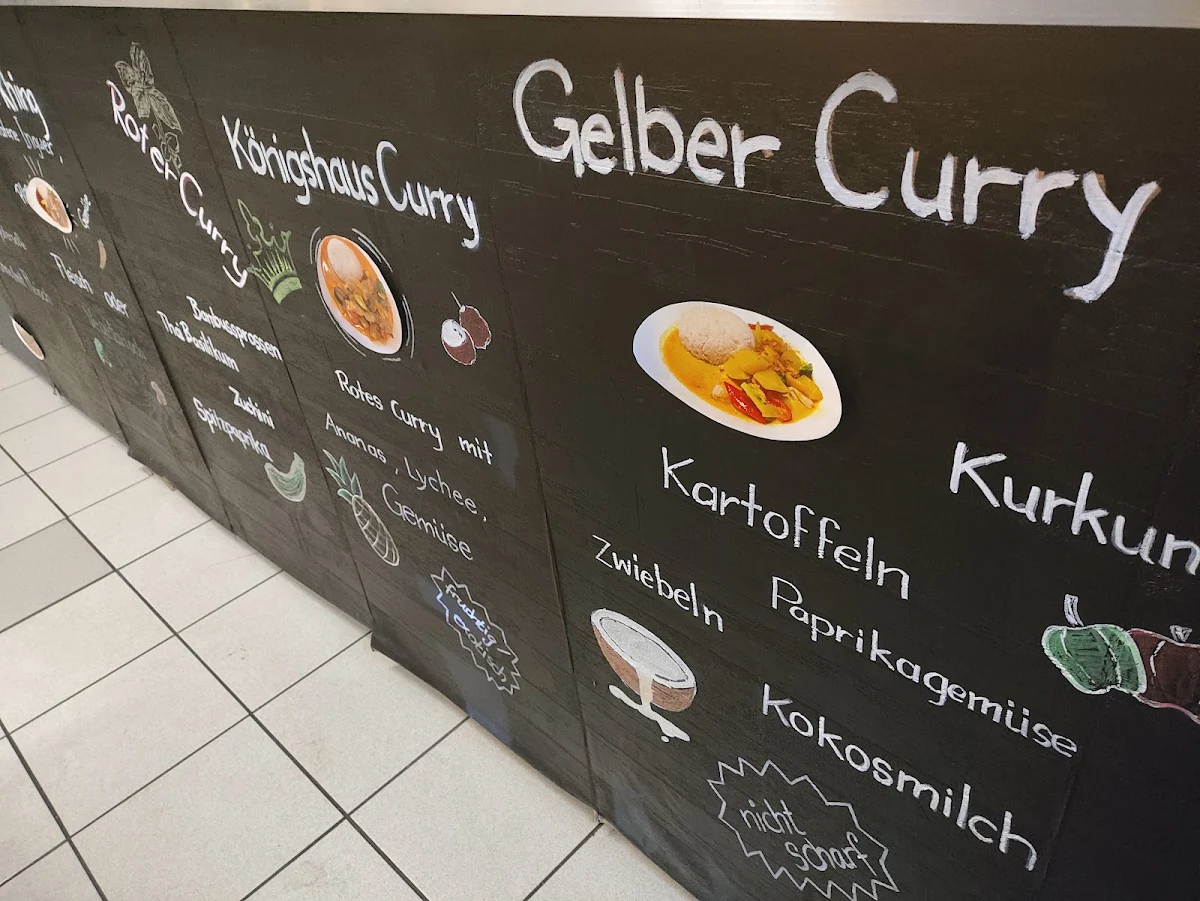 Roter Curry
Bambussprossen
Thai Basilikum
Zuchini
Spitzpaprika
Königshaus Curry
Rotes Curry mit
Ananas, Lychee,
Gemüse
fruchtig
exotisch
Gelber Curry
Kartoffeln
Kurkum
Zwiebeln
Paprikagemüse
Kokosmilch
nicht
scharf